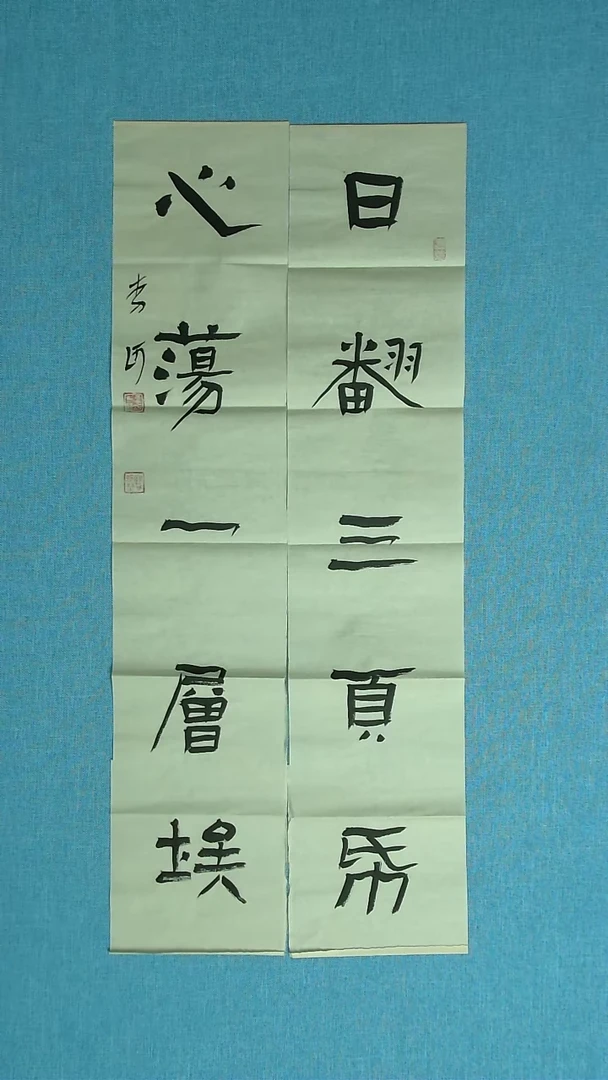 日翻三頁帋
心蕩一層埃